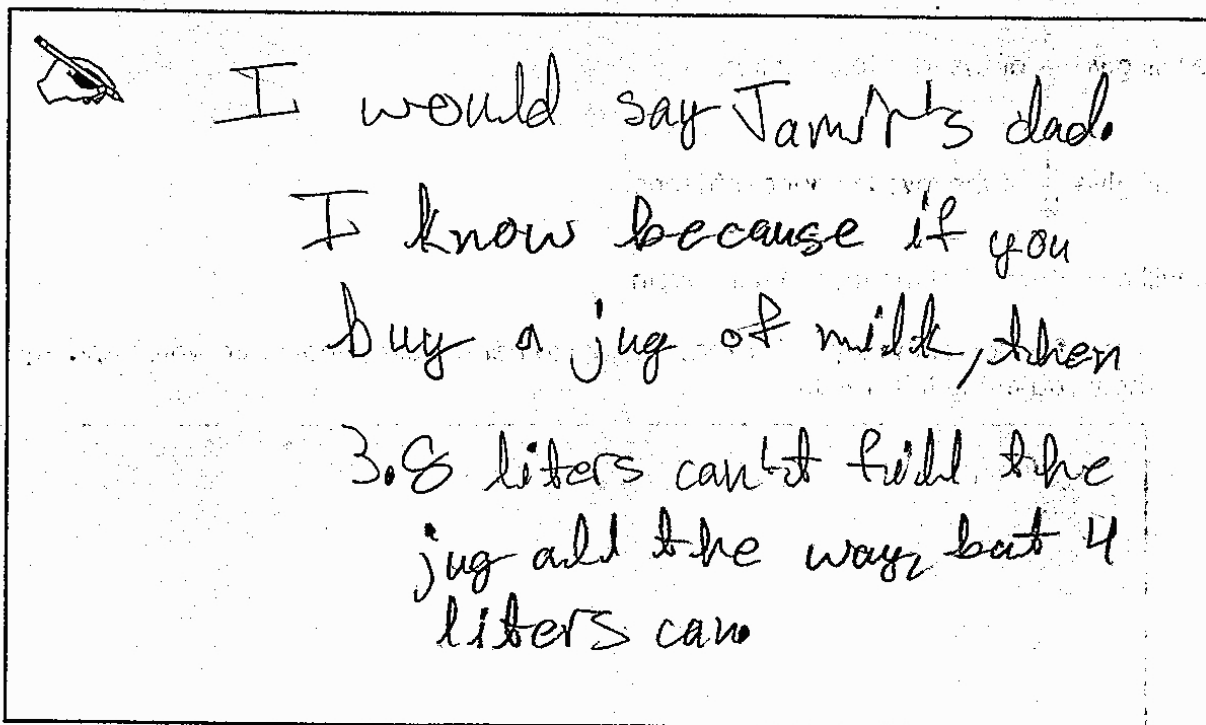 I would say Jamir's dad.
I know because if you
buy a jug of milk, then
3.8 liters can't fill the
jug all the way, but 4
liters can.